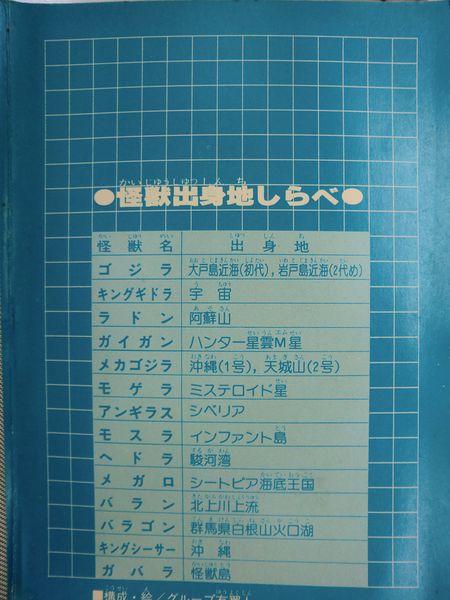 ●怪獣出身地しらべ●
怪獣名 出身地
ゴジラ 大戸島近海(初代),岩戸島近海(2代め)
キングギドラ 宇宙
ラドン 阿蘇山
ガイガン ハンター星雲M星
メカゴジラ 沖縄(1号),天城山(2号)
モゲラ ミステロイド星
アンギラス シベリア
モスラ インファント島
ヘドラ 駿河湾
メガロ シートピア海底王国
バラン 北上川上流
バラゴン 群馬県白根山火口湖
キングシーサー 沖縄
ガバラ 怪獣島
■構成・絵/グループ有翼人